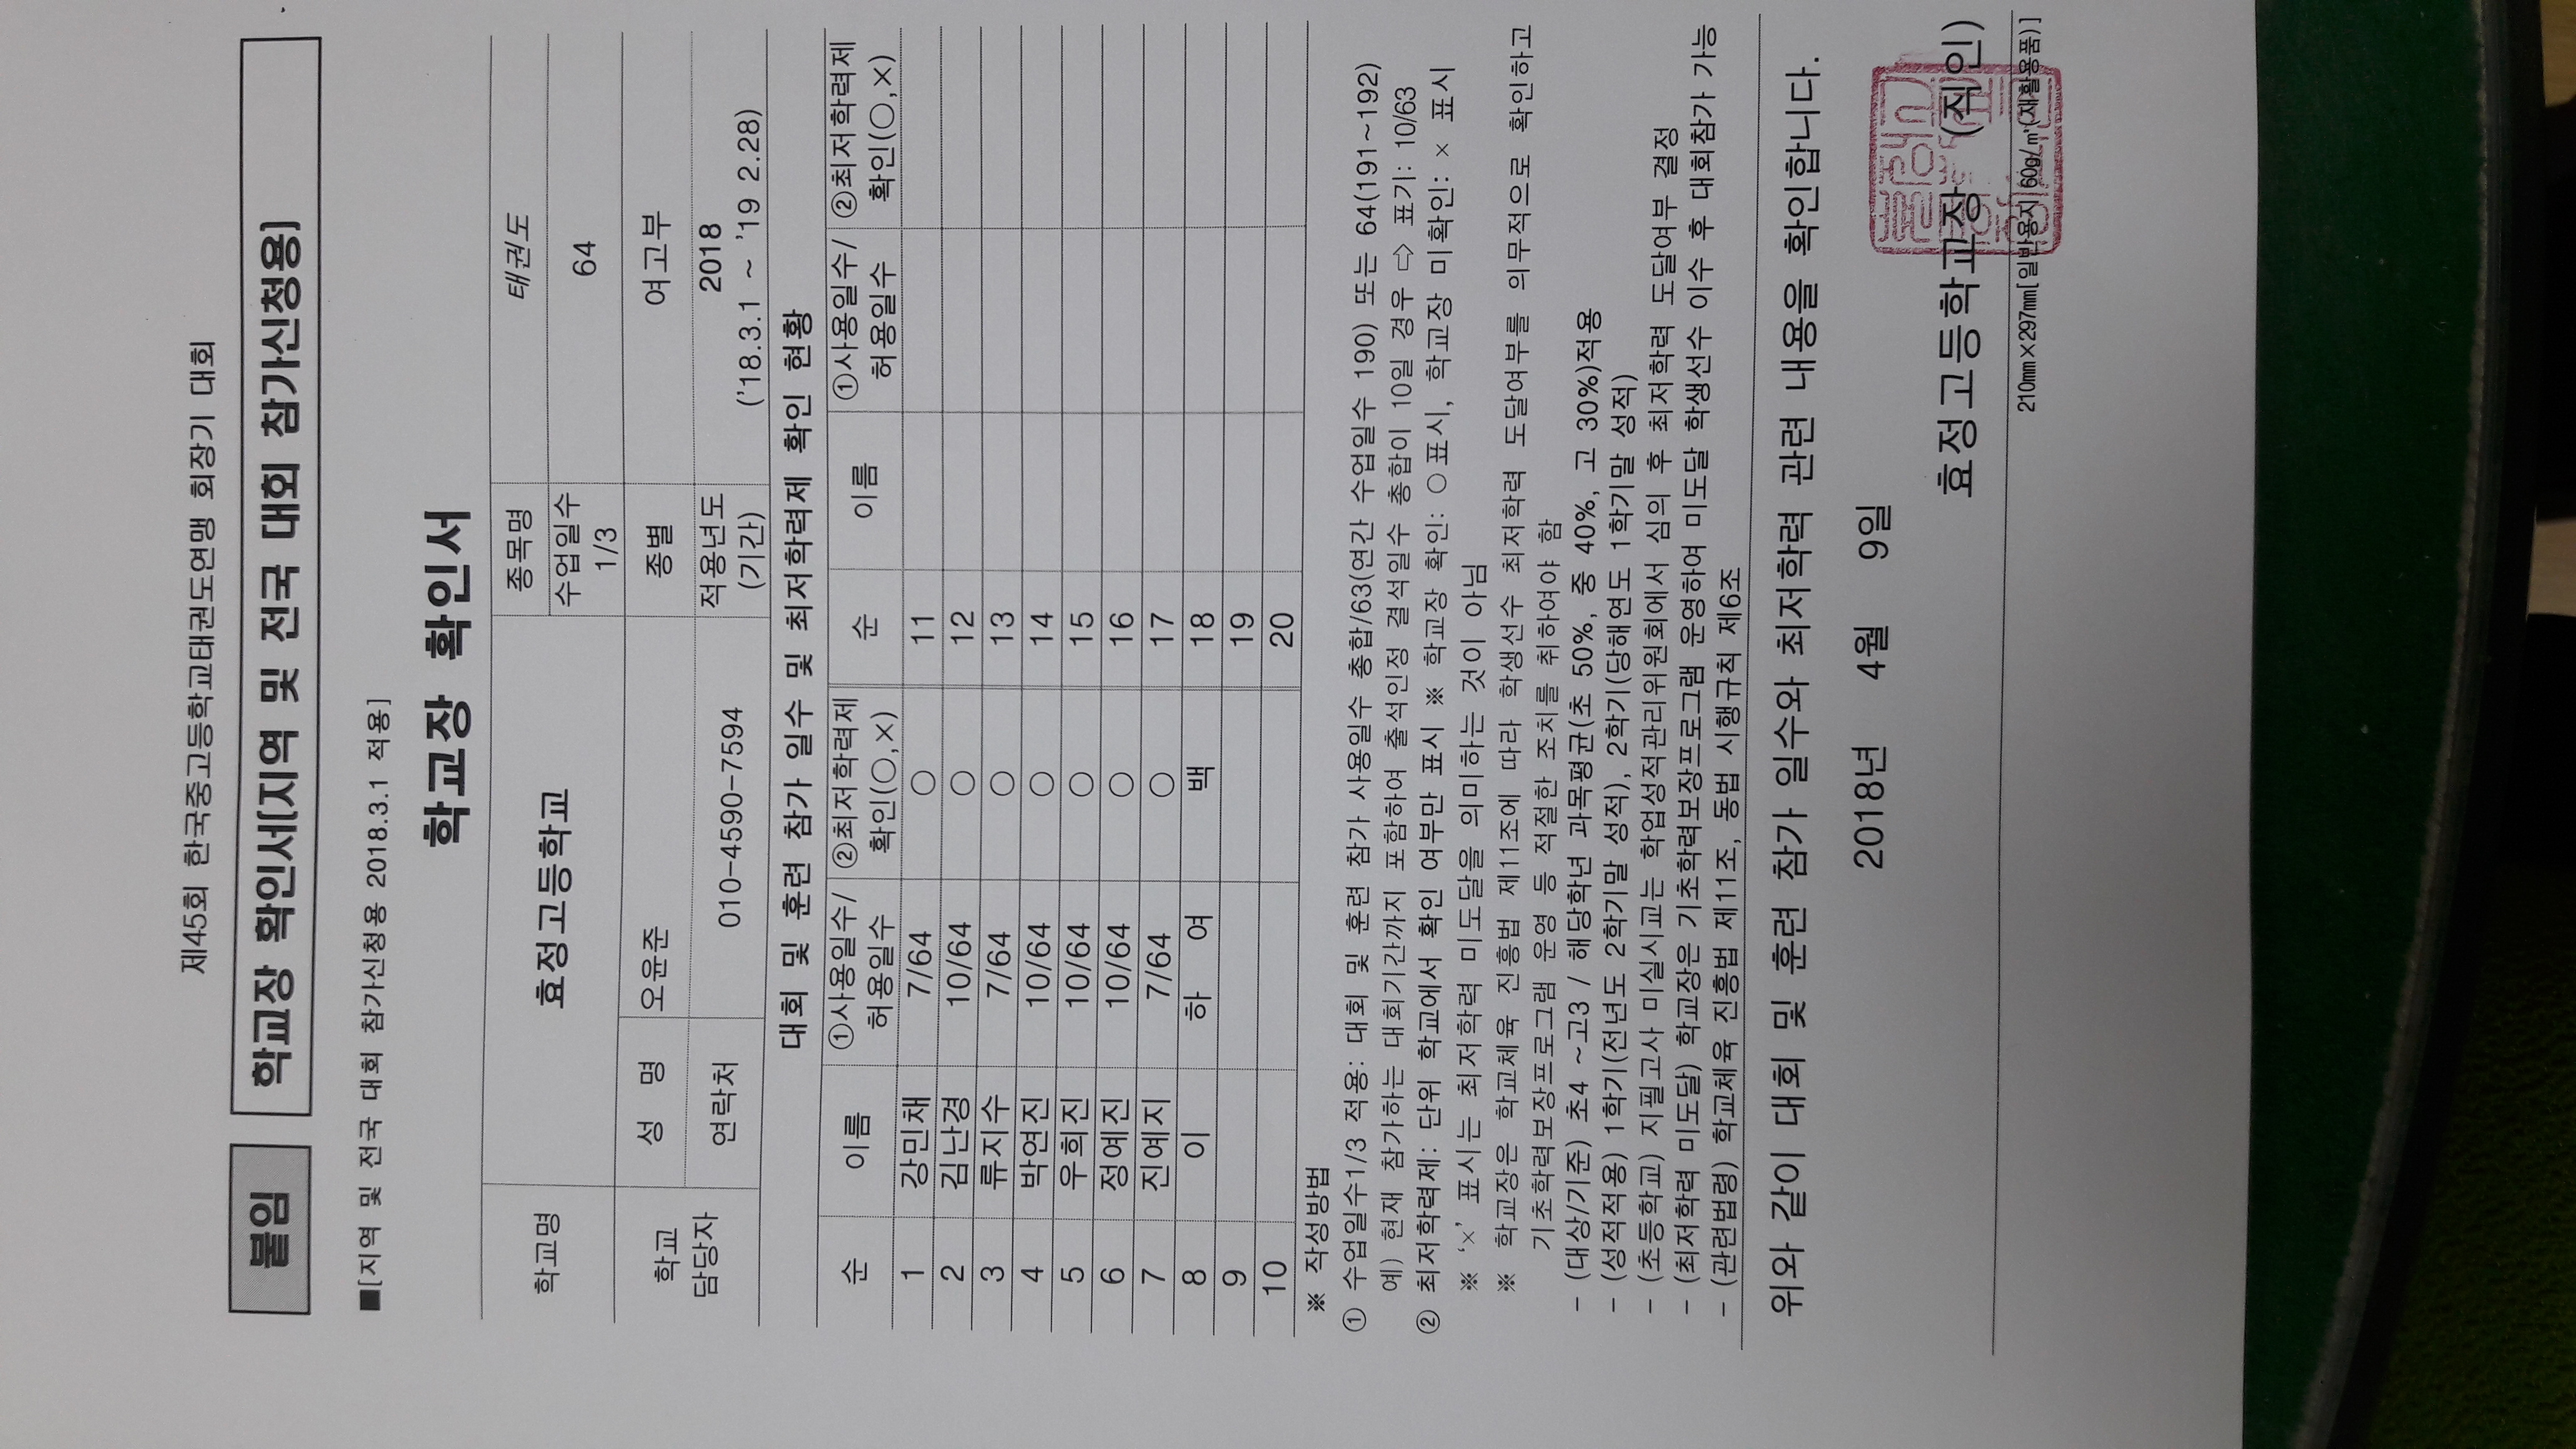 제45회 한국중고등학교태권도연맹 회장기 대회
붙임 학교장 확인서(지역 및 전국 대회 참가신청용)
■[지역 및 전국 대회 참가신청용 2018.3.1 적용]
학교장 확인서
학교명 효정고등학교 종목명 태권도
수업일수 1/3 64
학교 담당자 성 명 오윤준 종별 여고부
연락처 010-4590-7594 적용년도 (기간) 2018 ('18.3.1 ~ '19 2.28)
대회 및 훈련 참가 일수 및 최저학력제 확인 현황
순 이름 ①사용일수/허용일수 ②최저학력제 확인(○,×) 순 이름 ①사용일수/허용일수 ②최저학력제 확인(○,×)
1 강민채 7/64 ○ 11
2 김난경 10/64 ○ 12
3 류지수 7/64 ○ 13
4 박연진 10/64 ○ 14
5 우희진 10/64 ○ 15
6 정예진 10/64 ○ 16
7 진예지 7/64 ○ 17
8 이 하 여 백 18
9 19
10 20
※ 작성방법
① 수업일수1/3 적용: 대회 및 훈련 참가 사용일수 총합/63(연간 수업일수 190) 또는 64(191~192)
예) 현재 참가하는 대회기간까지 포함하여 출석인정 결석일수 총합이 10일 경우 ⇨ 표기: 10/63
② 최저학력제: 단위 학교에서 확인 여부만 표시 ※ 학교장 확인: ○표시, 학교장 미확인: × 표시
※ '×' 표시는 최저학력 미도달을 의미하는 것이 아님
※ 학교장은 학교체육 진흥법 제11조에 따라 학생선수 최저학력 도달여부를 의무적으로 확인하고
기초학력보장프로그램 운영 등 적절한 조치를 취하여야 함
- (대상/기준) 초4 ~고3 / 해당학년 과목평균(초 50%, 중 40%, 고 30%)적용
- (성적적용) 1학기(전년도 2학기말 성적), 2학기(당해연도 1학기말 성적)
- (초등학교) 지필고사 미실시교는 학업성적관리위원회에서 심의 후 최저학력 도달여부 결정
- (최저학력 미도달) 학교장은 기초학력보장프로그램 운영하여 미도달 학생선수 이수 후 대회참가 가능
- (관련법령) 학교체육 진흥법 제11조, 동법 시행규칙 제6조
위와 같이 대회 및 훈련 참가 일수와 최저학력 관련 내용을 확인합니다.
2018년 4월 9일
효정고등학교장 (직인)
210mm×297mm[일반용지 60g/㎡(재활용품)]